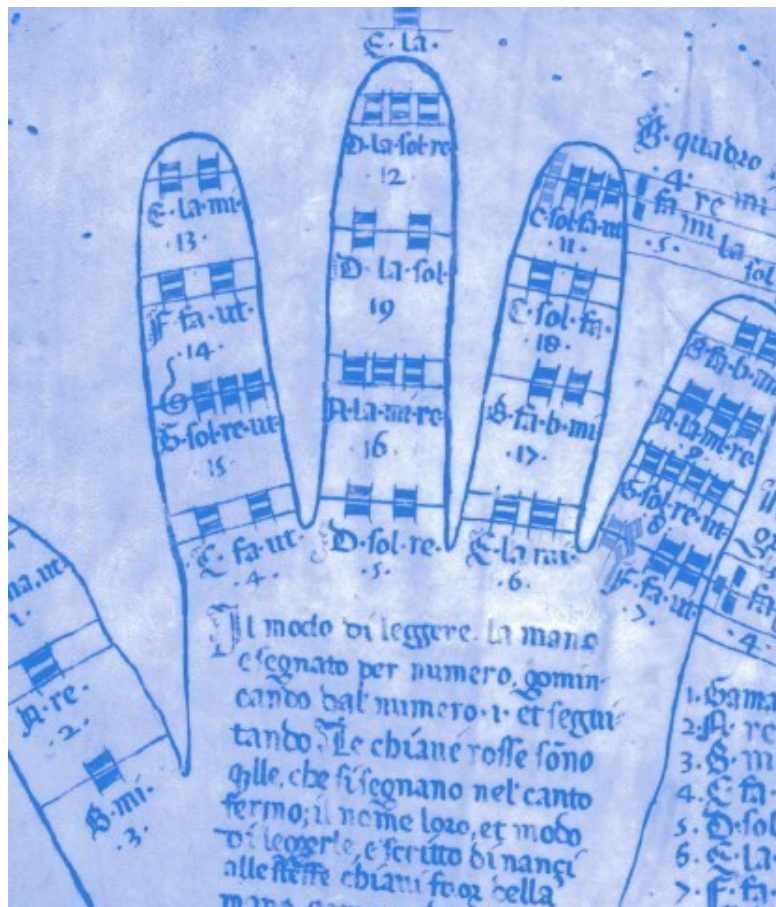 E·la·
D·la·sol·re
12
E·la·mi·
·13·
F·fa·ut·
·14·
G·sol·re·ut·
·15·
C·fa·ut·
·4·
D·la·sol·
19
A·la·mi·re·
16
D·sol·re·
·5·
C·sol·fa·ut
11·
C·sol·fa·
·18·
B·fa·b·mi·
·17·
E·la·mi·
·6·
B·quadro·
·4·
re mi
fa re mi
mi la sol
·5·
B·fa·b·mi·
A·la·mi·re·
·9·
G·sol·re·ut·
·8·
F·fa·ut·
·7·
fa
·4·
ma·ut·
·1·
A·re·
·2·
B·mi·
·3·
Il modo di leggere la mano
e segnato per numero, gomin-
cando dal numero·1· et segui-
tando Le chiaue rosse sono
qlle, che si segnano nel canto
fermo; il nome loro, et modo
di leggerle, e scritto dinançi
alle steffe chiaui fuor della
mano
1·Gama
2·A·re
3·B·m
4·C·fa
5·D·sol
6·E·la
7·F·fa